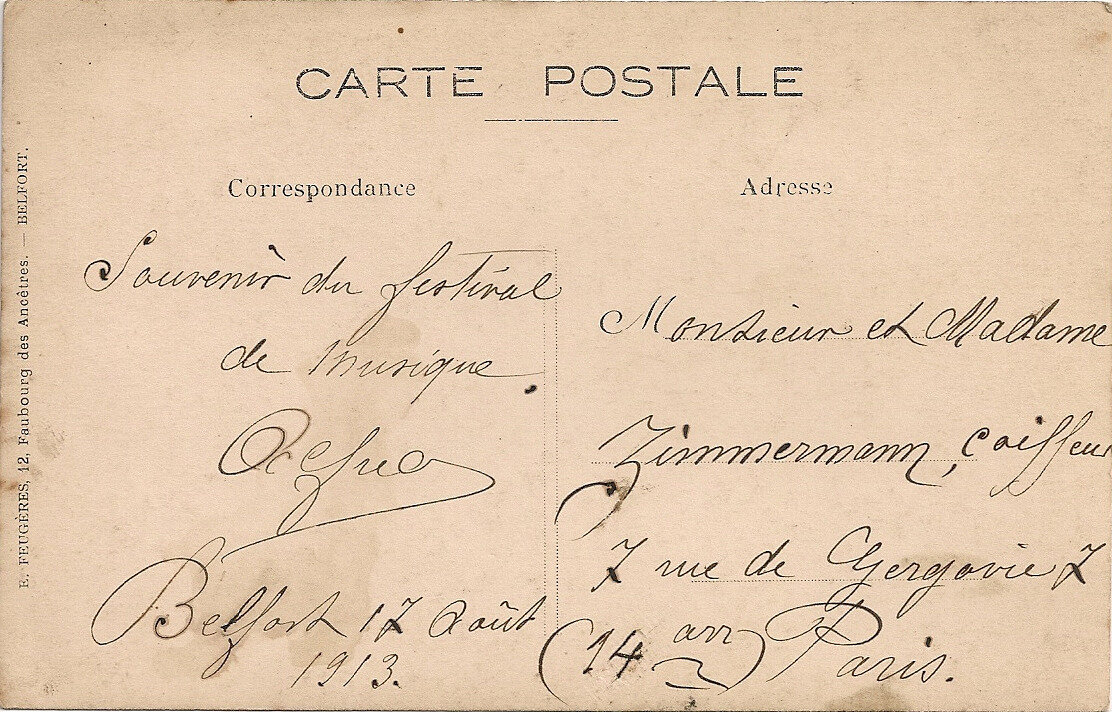 CARTE POSTALE
Correspondance
Souvenir du festival
de musique.
Belfort 17 Août
1913.
Adresse
Monsieur et Madame
Zimmermann, coiffeur
7 rue de Gergovie 7
(14 arr) Paris.
E. FEUGÈRES, 12, Faubourg des Ancêtres. — BELFORT.